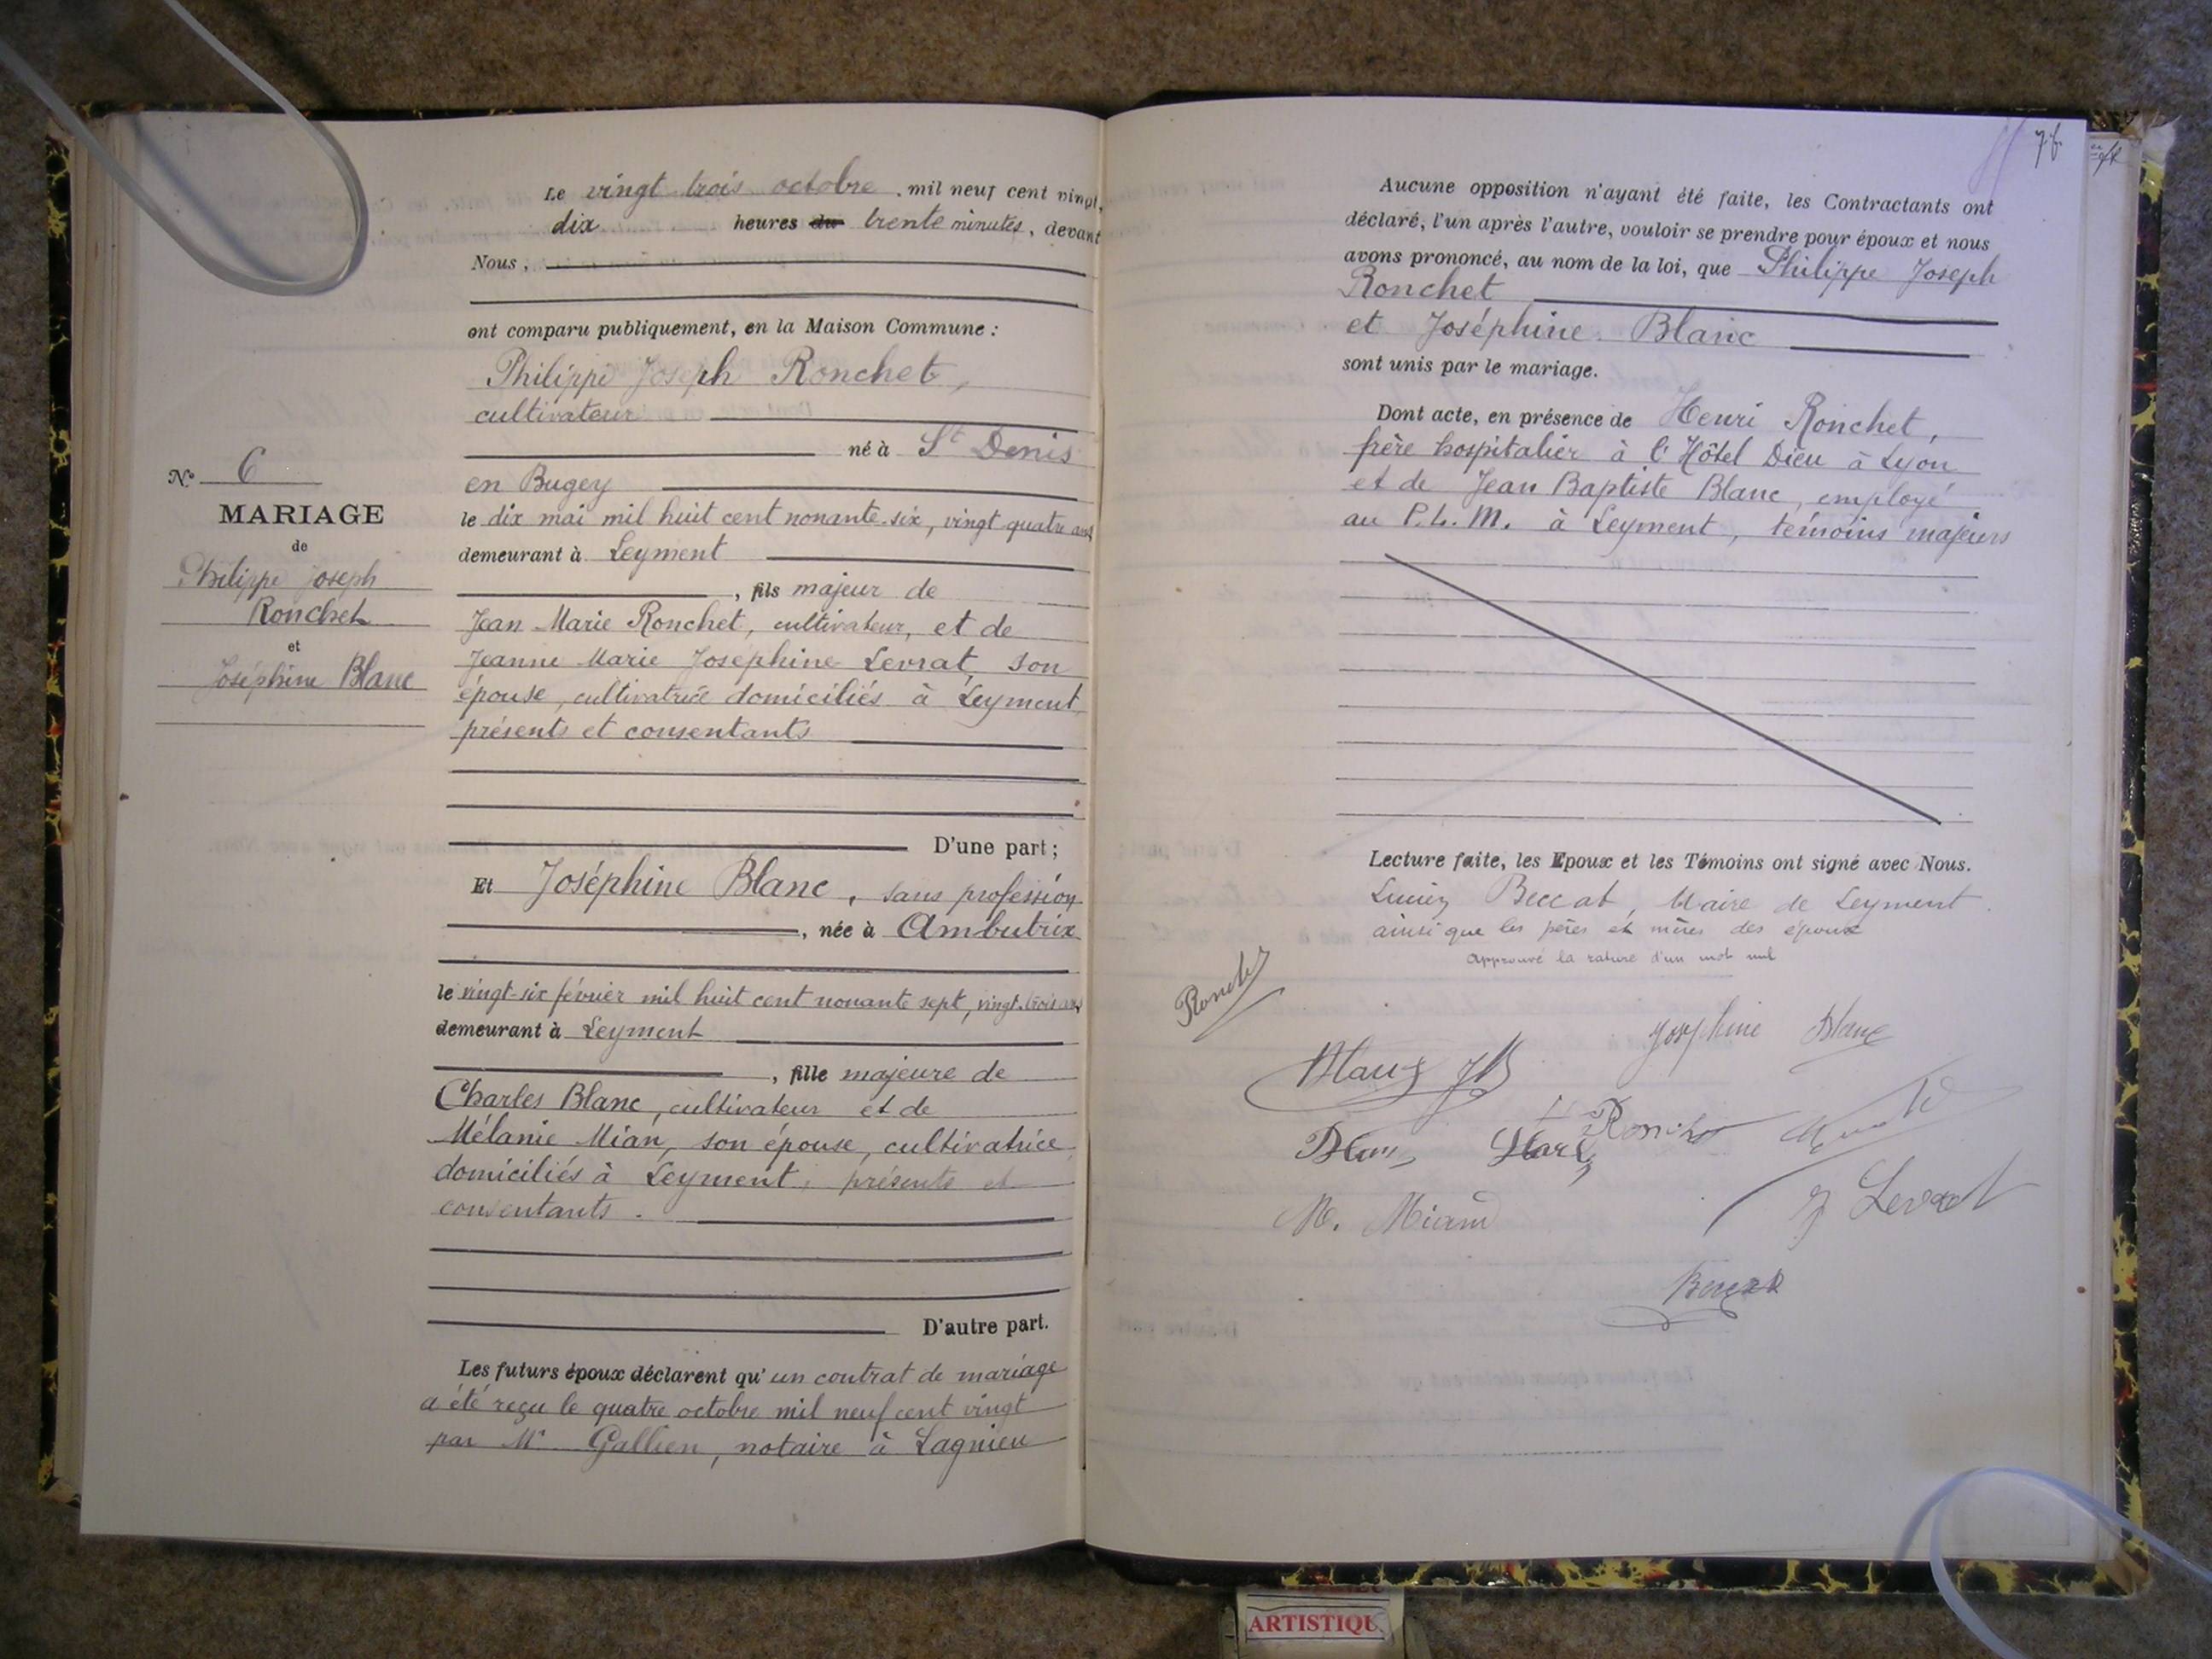 Le vingt trois octobre, mil neuf cent vingt,
dix heures du trente minutes, devant
Nous,
ont comparu publiquement, en la Maison Commune :
Philippe Joseph Ronchet,
cultivateur
né à St Denis
en Bugey
le dix mai mil huit cent nonante-six, vingt-quatre ans
demeurant à Leyment
, fils majeur de
Jean Marie Ronchet, cultivateur, et de
Jeanne Marie Joséphine Levrat, son
épouse, cultivatrice domiciliés à Leyment,
présents et consentants
D'une part;
Et Joséphine Blanc, sans profession
, née à Ambutrix
le vingt-six février mil huit cent nonante sept, vingt-trois ans
demeurant à Leyment
, fille majeure de
Charles Blanc, cultivateur et de
Mélanie Mian, son épouse, cultivatrice
domiciliés à Leyment, présents et
consentants.
D'autre part.
Les futurs époux déclarent qu'un contrat de mariage
a été reçu le quatre octobre mil neuf cent vingt
par Me Gallien, notaire à Lagnieu
No 6
MARIAGE
de
Philippe Joseph
Ronchet
et
Joséphine Blanc
76
Aucune opposition n'ayant été faite, les Contractants ont
déclaré, l'un après l'autre, vouloir se prendre pour époux et nous
avons prononcé, au nom de la loi, que Philippe Joseph
Ronchet
et Joséphine Blanc
sont unis par le mariage.
Dont acte, en présence de Henri Ronchet,
frère hospitalier à l'Hôtel Dieu à Lyon
et de Jean Baptiste Blanc, employé
au P.L.M. à Leyment, témoins majeurs
Lecture faite, les Epoux et les Témoins ont signé avec Nous.
Lucien Beccat, Maire de Leyment.
ainsi que les pères et mères des époux
Approuvé la rature d'un mot nul
Ronchet
Joséphine Blanc
Blanc JB
H Ronchet
Blanc
M. Miand
J Levrat
Beccat
ARTISTIQU